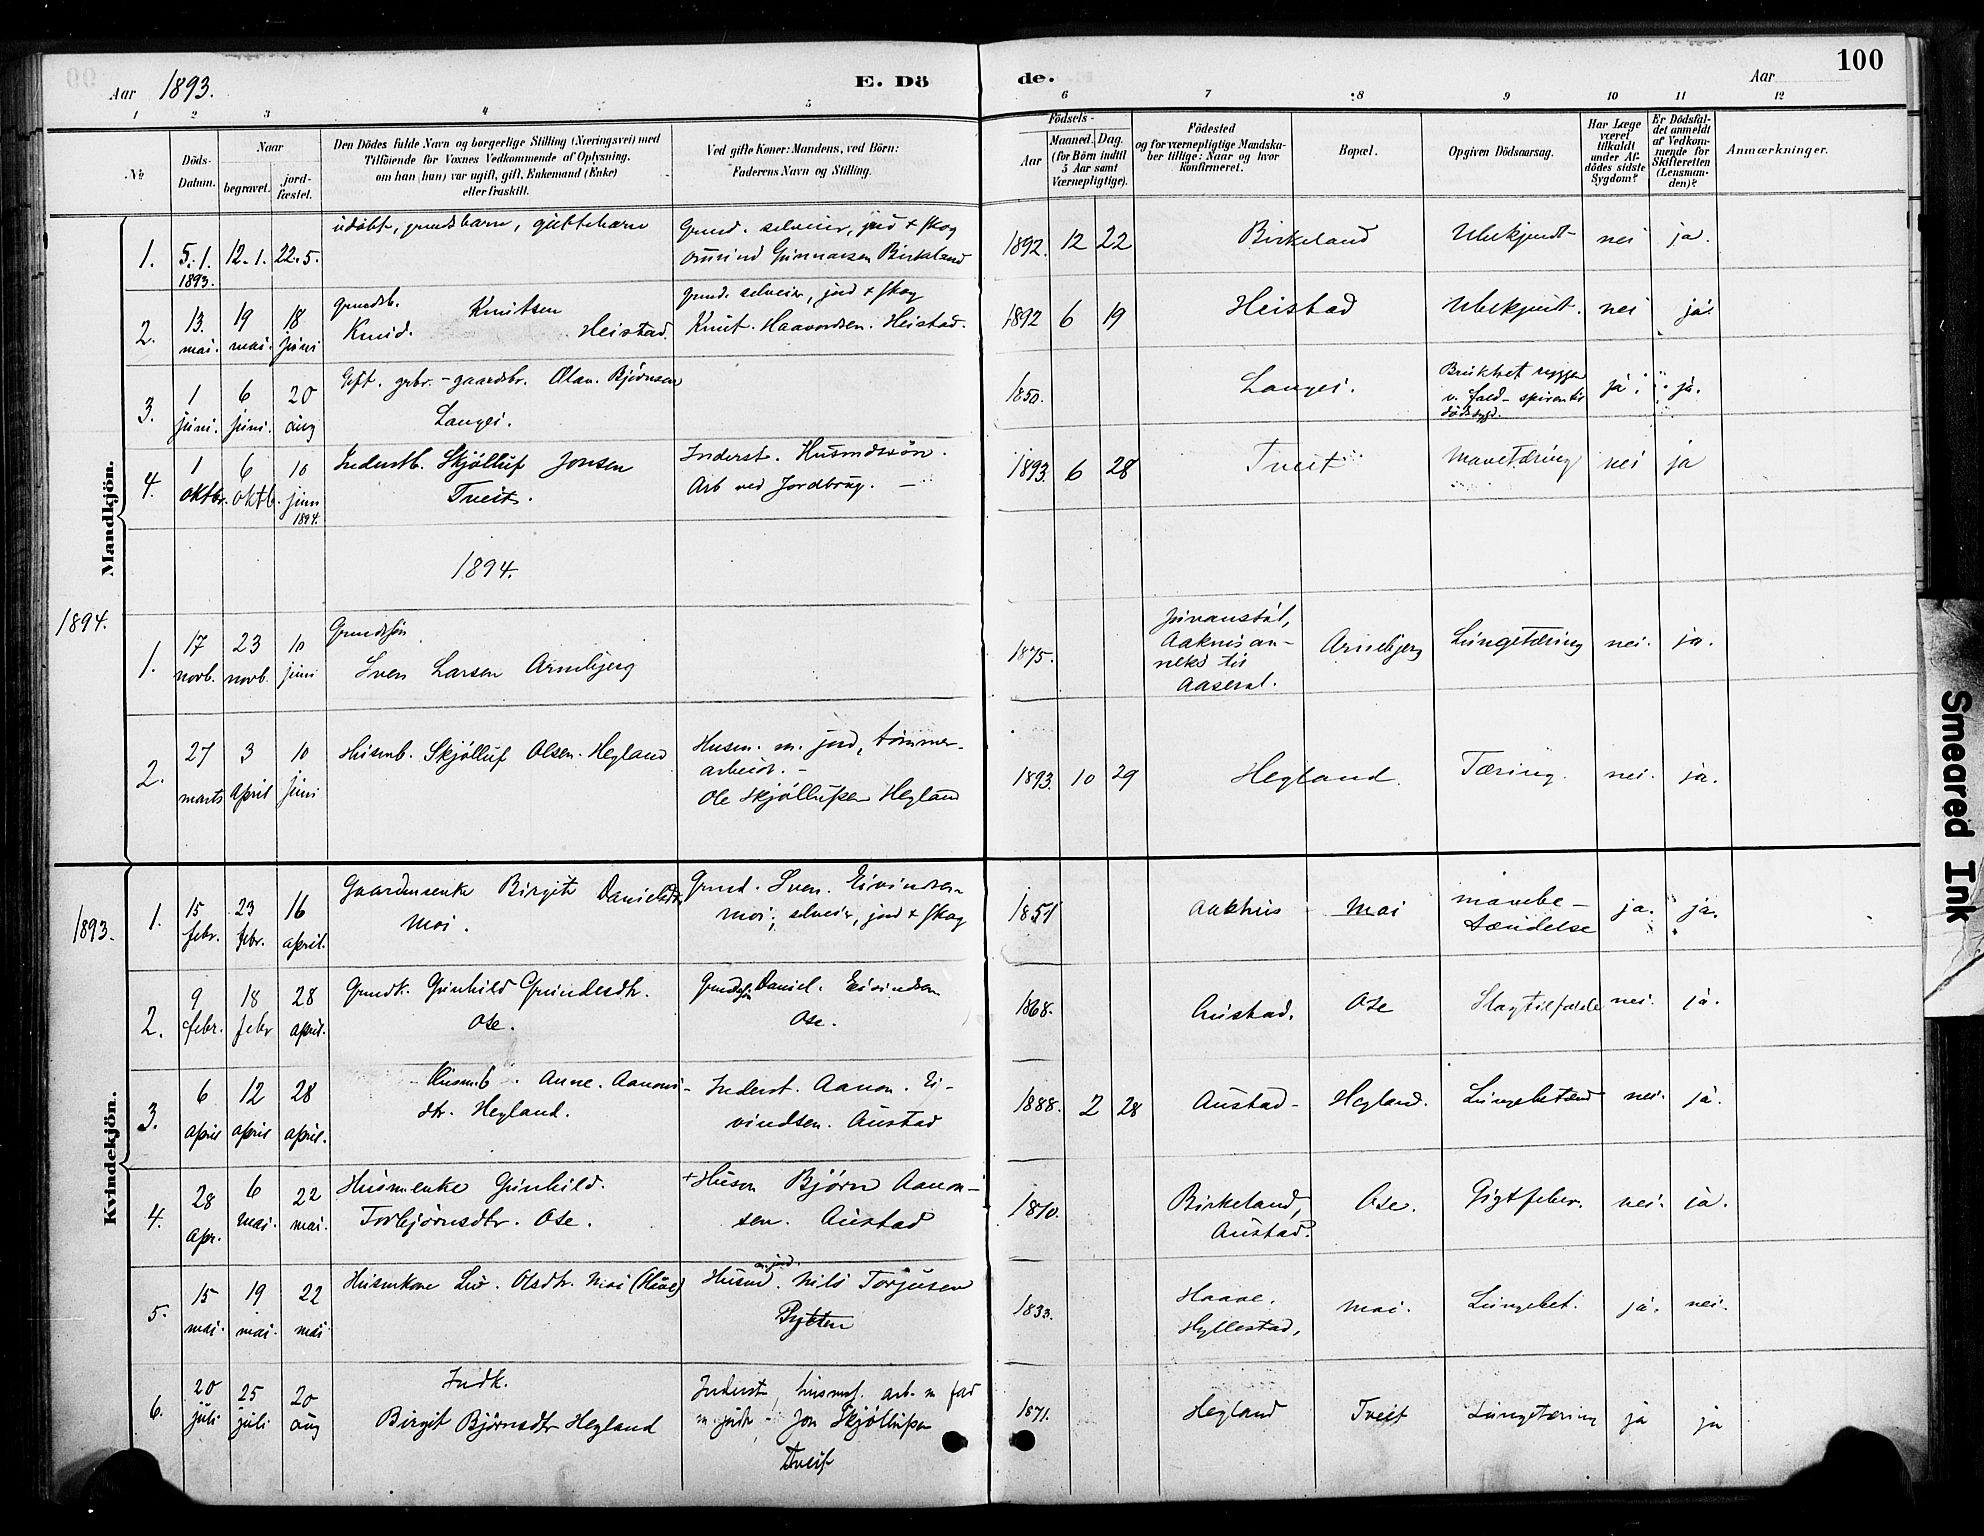 Aar 1893. E. Dö
de. Aar 100
1 2 3 4 5 6 7 8 9 10 11 12
No.
Döds-
Datum.
Naar
begravet.
jord-
fæstet.
Den Dödes fulde Navn og borgerlige Stilling (Næringsvei) med
Tilföiende for Voxnes Vedkommende af Oplysning,
om han (hun) var ugift, gift, Enkemand (Enke)
eller fraskilt.
Ved gifte Koner: Mandens, ved Börn:
Faderens Navn og Stilling.
Födsels-
Aar
Maaned.
Dag.
(for Börn indtil
5 Aar samt
Værnepligtige).
Födested
og for værnepligtige Mandska-
ber tillige: Naar og hvor
konfirmeret.
Bopæl.
Opgiven Dödsaarsag.
Har Læge
været
tilkaldt
under Af-
dödes sidste
Sygdom?
Er Dödsfal-
det anmeldt
af Vedkom-
mende for
Skifteretten
(Lensman-
den)?
Anmærkninger.
Mandkjön.
1. 5. 1. 1893. 12. 1. 22. 5.
udöbt, grundsbarn, guttebarn
Grund. selveier, jord + skog
Gunnarsen Birkeland
1892. 12 22 Birkeland Ubekjendt nei ja.
2. 13. mai. 19 mai. 18 juni
grundsb. Knutsen
Knud. Heistad.
grund. selveier, jord + skog
Knut. Haavordsen. Heistad.
1892 6 19 Heistad Ubekjent. nei ja
3. 1 juni. 6 juni. 20 aug
Gift. gbr. - gaardbr. Olav. Bjørnsen
Langei.
1850. Langei. Brukket ryggen
v. fald -
ja. ja.
4. 1 oktbr. 6 oktb. 10 juni 1894.
Inderstb. Skjølluf Jonsen
Tveit.
Inderst. Husmdssøn.
Arb ved Jordbrug. —
1893. 6 28 Tveit Mavetæring nei ja
1894.
1894.
1. 17 novb. 23 novb. 10 juni
Grundssøn
Sven Larsen Arnebjerg
1875.
Juvanstøl,
Aaknis an-
neks til
Aaseral.
Arnebjerg Lungetæring nei. ja.
2. 27 marts 3 April 10 juni
Husmb. Skjølluf Olsen. Hegland
Husm. m. jord, tømmer-
arbeid. -
Ole Skjøllufsen Hegland
1893. 10 29 Hegland. Tæring. nei. ja.
Kvindekjön.
1893.
1. 15 febr. 23 febr. 16 april.
Gaardmenke Birgit Danielsdtr.
Moi.
Grund. Sven. Eivindsen
Moi; selveier, jord + skog
1851 Aakhus Moi mavebe-
tændelse ja. ja.
2. 9 febr. 18 febr 28 april.
Grundk. Gunhild Gundersdtr.
Ose.
Grundssøn Daniel. Eivindsen
Ose.
1868. Austad. Ose Slagtilfælde nei. ja.
3. 6 april 12 april 28 april.
Husmb. Anne. Aanons-
dtr. Hegland.
Inderst. Aanon. Ei-
vindsen. Austad
1888. 2 28 Austad- Hegland. Lungebetænd nei. ja.
4. 28 apr. 6 mai. 22 mai.
Husmenke Gunhild.
Torbjørnsdtr. Ose.
+ Husm Bjørn Aanon-
sen. Austad
1810. Birkeland,
Austad. Ose. Gigtfeber. nei. ja.
5. 15 mai. 19 mai. 22 mai.
Husmkone Liv. Olsdtr. Moi (Haae)
m. jord.
Husmd. Nils Torjusen
Pytten
1833. Haaae.
Hyllestad, Moi. Lungebet. ja. nei.
6. 20 juli 25 juli 20 aug
Indk.
Birgit Bjørnsdtr Hegland
Inderst, husm. arb.
Jon Skjøllufsen
Tveit
1871. Hegland Tveit Lungetæring ja ja
Smeared Ink